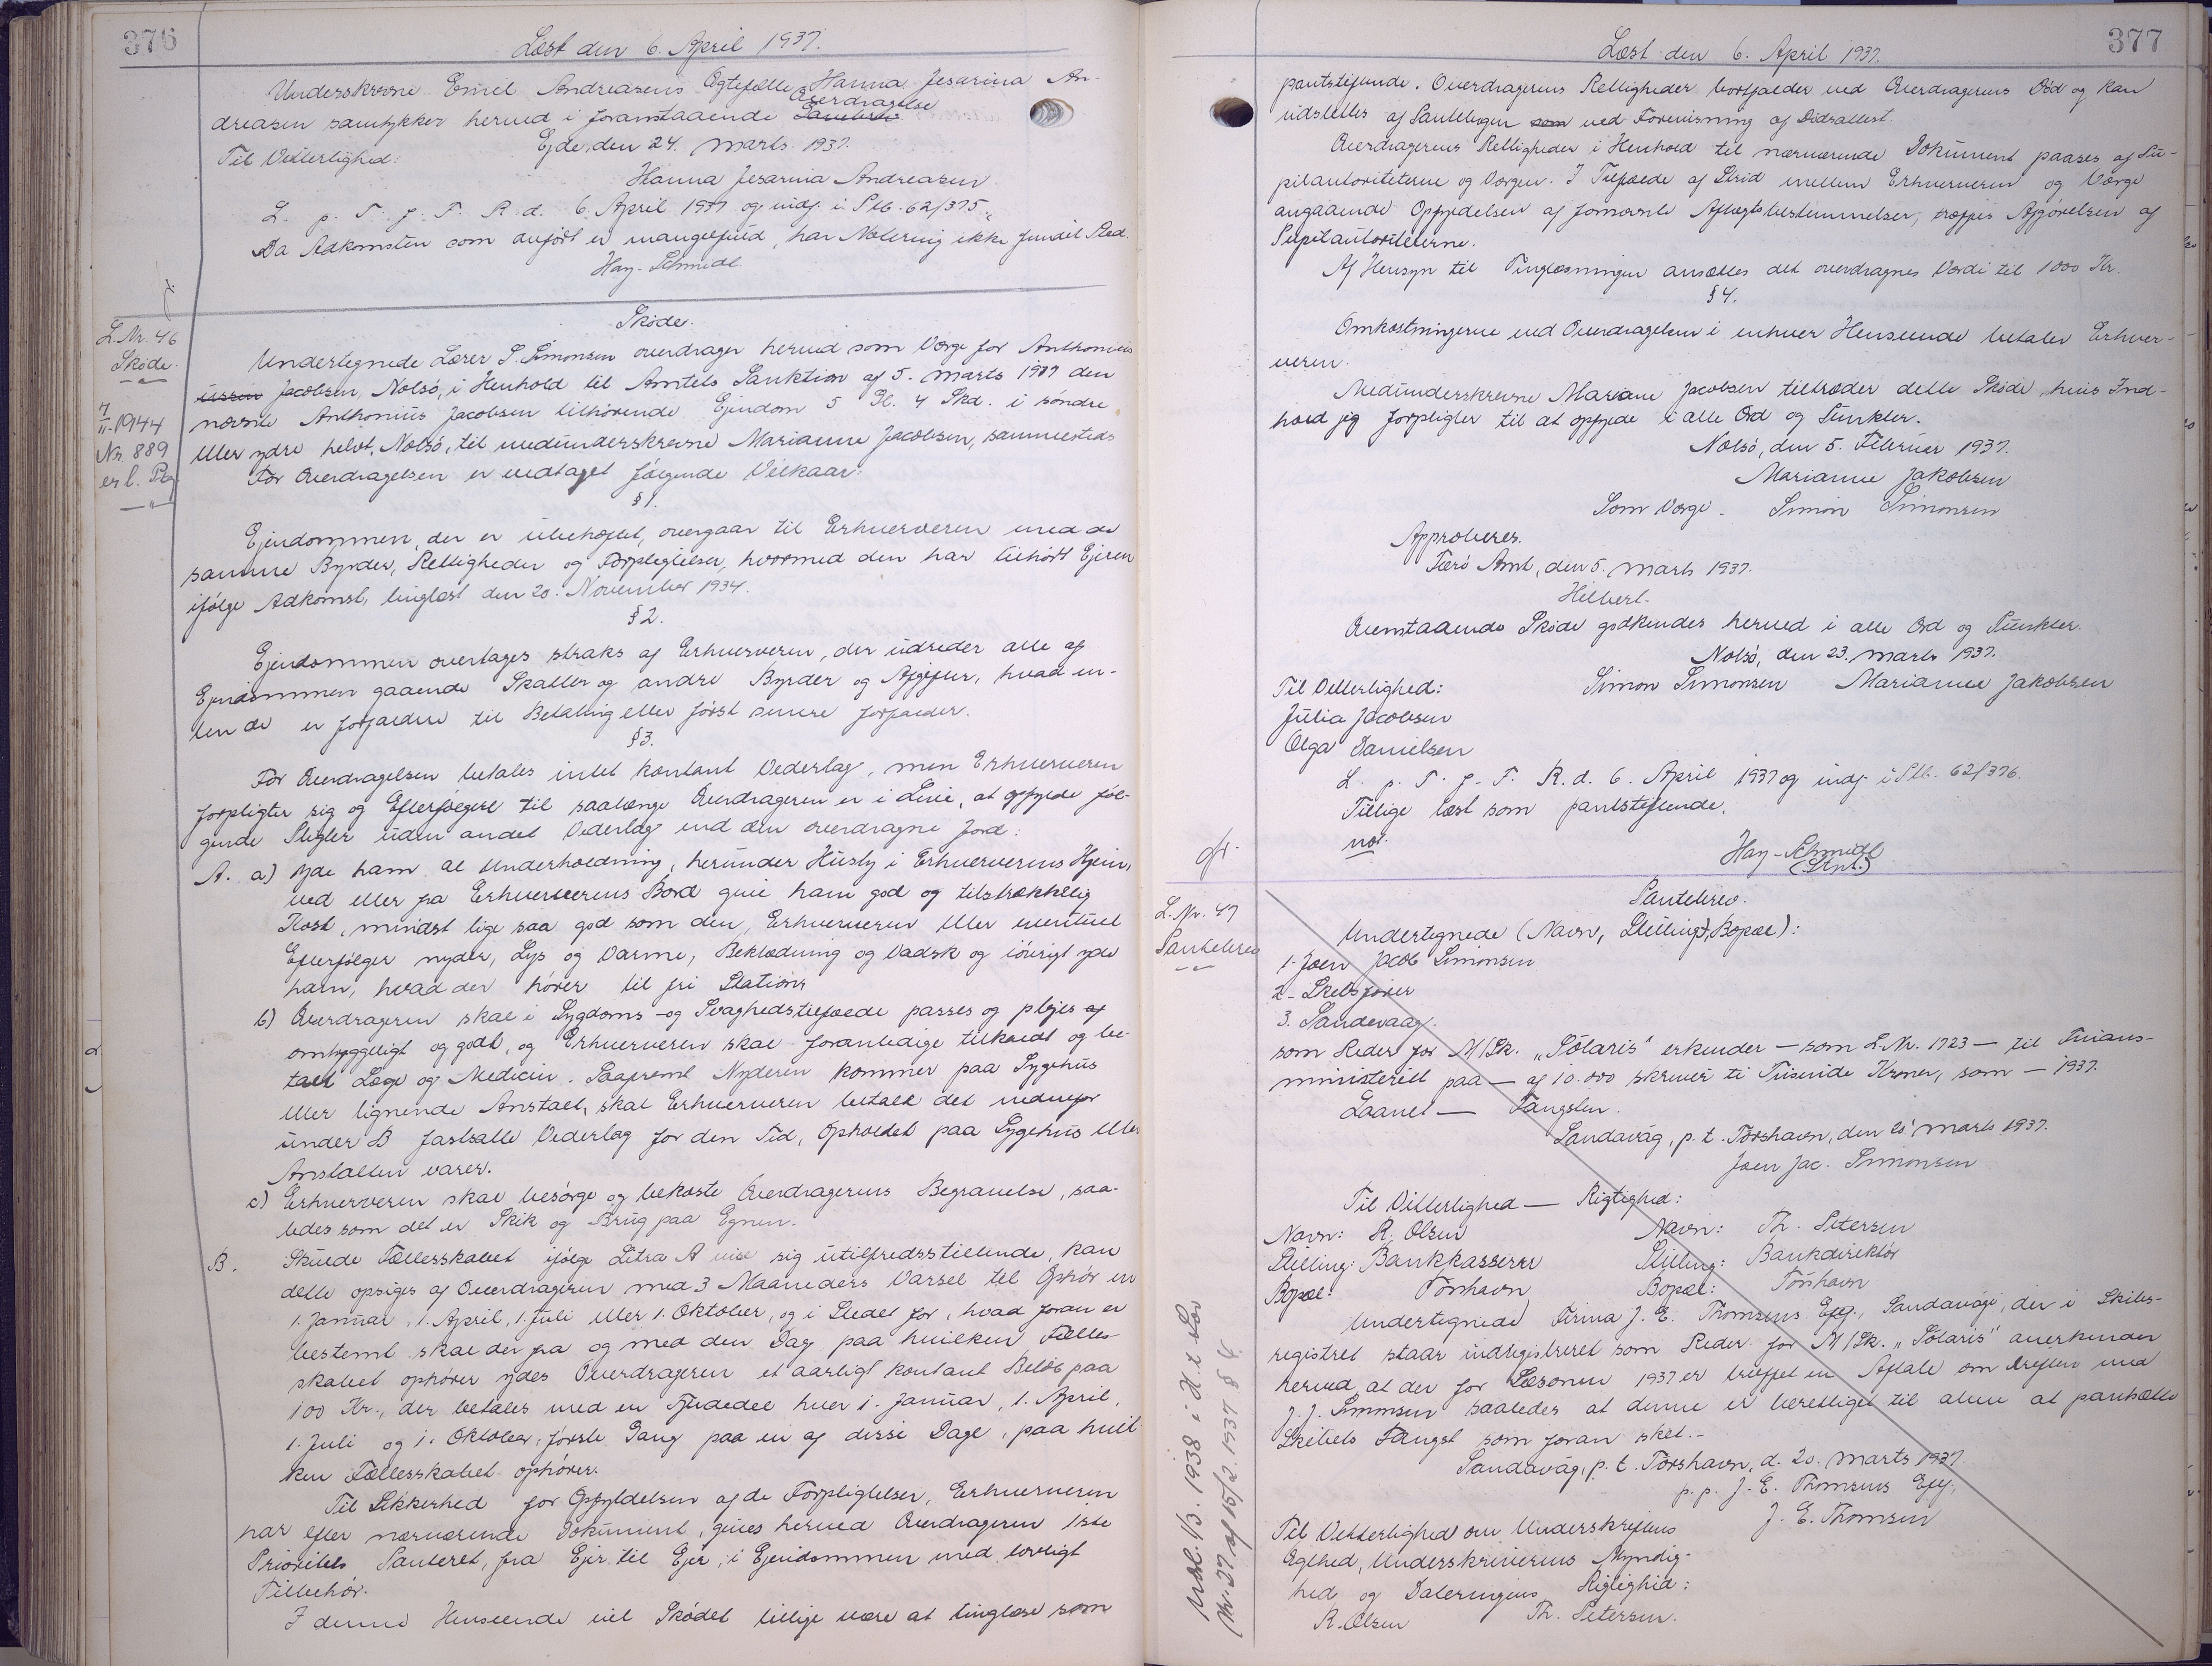 376
Læst den 6. April 1937.
Underskrevne Emil Andreasens Ægtefælle Hanna Jesarina An-
dreasen samtykker herved i foranstaaende Overdragelse
Ejde, den 24. Marts 1937.
Til Vitterlighed:
Hanna Jesarina Andreasen
L. p. T. f. F. R. d. 6. April 1937 og indf. i S.Pb. 62/375.
Da Adkomsten som anført er mangelfuld, har Notering ikke fundet Sted.
Hay-Schmidt.
L. Nr. 46
Skøde.
7/11-1944
Nr. 889
Skøde.
Undertegnede Lærer S. Simonsen overdrager herved som Værge for Anthonius
Jacobsen, Nolsø, i Henhold til Amtets Sanktion af 5. Marts 1937 den
nævnte Anthonius Jacobsen tilhørende Ejendom 5 Gl. 4 Skd. i søndre
eller ydre helvt, Nolsø, til medunderskrevne Marianne Jacobsen, sammesteds
For Overdragelsen er vedtaget følgende Vilkaar:
§1.
Ejendommen, der er ubehæftet, overgaar til Erhververen med de
samme Byrder, Rettigheder og Forpligtelser, hvormed den har tilhørt Ejeren
ifølge Adkomst, tinglæst den 20. November 1934.
§2.
Ejendommen overtages straks af Erhververen, der udreder alle af
Ejendommen gaaende Skatter og andre Byrder og Afgifter, hvad en-
ten de er forfaldne til Betaling eller først senere forfalder.
§3.
For Overdragelsen betales intet kontant Vederlag, men Erhververen
forpligter sig og Efterfølgere til saalænge Overdrageren er i Live, at opfylde føl-
gende Pligter uden andet Vederlag end den overdragne Jord:
A. a) Yde ham al Underholdning, herunder Husly i Erhververens Hjem,
ved eller fra Erhververens Bord give ham god og tilstrækkelig
Kost, mindst lige saa god som den, Erhververen eller eventuel
Efterfølger nyder, Lys og Varme, Beklædning og Vadsk og iøvrigt yde
ham, hvad der hører til fri Station
b) Overdrageren skal i Sygdoms- og Svaghedstilfælde passes og plejes
omhyggeligt og godt, og Erhververen skal foranledige tilkaldt og be-
talt Læge og Medicin. Saafremt Nyderen kommer paa Sygehus
eller lignende Anstalt, skal Erhververen betale det nedenfor
under B fastsatte Vederlag for den Tid, Opholdet paa Sygehus eller
Anstalten varer.
c) Erhververen skal besørge og bekoste Overdragerens Begravelse, saa-
ledes som det er Skik og Brug paa Egnen.
B. Skulde Fællesskabet ifølge Litra A vise sig utilfredsstillende, kan
dette opsiges af Overdrageren med 3 Maaneders Varsel til Ophør en
1. Januar, 1. April, 1. Juli eller 1. Oktober, og i Stedet for, hvad foran er
bestemt skal der fra og med den Dag paa hvilken Fælles-
skabet ophører ydes Overdrageren et aarligt kontant Beløb paa
100 Kr., der betales med en Fjerdedel hver 1. Januar, 1. April,
1. Juli og 1. Oktober, første Gang paa en af disse Dage, paa hvil-
ken Fællesskabet ophører.
Til Sikkerhed for Opfyldelsen af de Forpligtelser, Erhververen
har efter nærværende Dokument, gives herved Overdrageren 1ste
Prioritets Panteret, fra Ejer til Ejer, i Ejendommen med lovligt
Tilbehør.
I denne Henseende vil Skødet tillige være at tinglæse som
377
Læst den 6. April 1937.
pantstiftende. Overdragerens Rettigheder bortfalder ved Overdragerens Død og kan
udslettes af Pantebogen som ved Forevisning af Dødsattest.
Overdragerens Rettigheder i Henhold til nærværende Dokument paases af Pu-
pilautoriteterne og Værgen. I Tilfælde af Strid mellem Erhververen og Værge
angaaende Opfyldelsen af fornævnte Aftægtsbestemmelser, træffes Afgørelsen af
Pupilautoriteterne.
Af Hensyn til Tinglæsningen ansættes det overdragnes Værdi til 1000 Kr.
§4.
Omkostningerne ved Overdragelsen i enhver Henseende betaler Erhver-
veren.
Medunderskrevne Mariane Jacobsen tiltræder dette Skøde, hvis Ind-
hold jeg forpligter til at opfylde i alle Ord og Punkter.
Nolsø, den 5. Februar 1937.
Marianne Jakobsen
Som Værge. Simon Simonsen
Approberes.
Færø Amt, den 5. Marts 1937.
Hilbert.
Ovenstaaende Skøde godkendes herved i alle Ord og Punkter.
Nolsø, den 23. Marts 1937.
Til Vitterlighed: Simon Simonsen Marianne Jakobsen
Julia Jacobsen
Olga Danielsen
L. p. T. f. F. R. d. 6. April 1937 og indf. i S.Pb. 62/376.
Tillige læst som pantstiftende.
not.
Hay-Schmidt
L. Nr. 47
Pantebrev
Pantebrev.
Undertegnede (Navn, Stilling, Bopæl):
1. Joen Jacob Simonsen
2. Skibsfører
3. Sandevaag.
som Reder for M/Sk. "Sólaris" erkender — som L.Nr. 1723 — til Finans-
ministeriet paa — af 10.000 skriver ti Tusinde Kroner, som — 1937.
Laanet — Fangsten.
Sandavág, p. t. Tórshavn, den 20' Marts 1937.
Joen Jac. Simonsen
Til Vitterlighed — Rigtighed:
Navn: R. Olsen Navn: Th. Petersen
Stilling: Bankkasserer Stilling: Bankdirektør
Bopæl: Tórshavn Bopæl: Tórshavn
Undertegnede Firma J. E. Thomsens Eftf., Sandavági, der i Skibs-
registret staar indregistreret som Reder for M/Sk. "Sólaris" anerkender
herved, at der for Sæsonen 1937 er truffet en Aftale om Driften med
J. J. Simonsen saaledes at denne er berettiget til alene at pantsætte
Skibets Fangst som foran sket.-
Sandavág, p. t. Tórshavn, d. 20. Marts 1937.
p. p. J. E. Thomsens Eftf.,
J. E. Thomsen
Til Vitterlighed om Underskriftens
Ægthed, Underskriverens Myndig-
hed og Dateringens Rigtighed:
R. Olsen Th. Petersen.
Udsl. 1/3. 1938 i H. t. Lov
Nr. 27 af 15/2. 1937 §